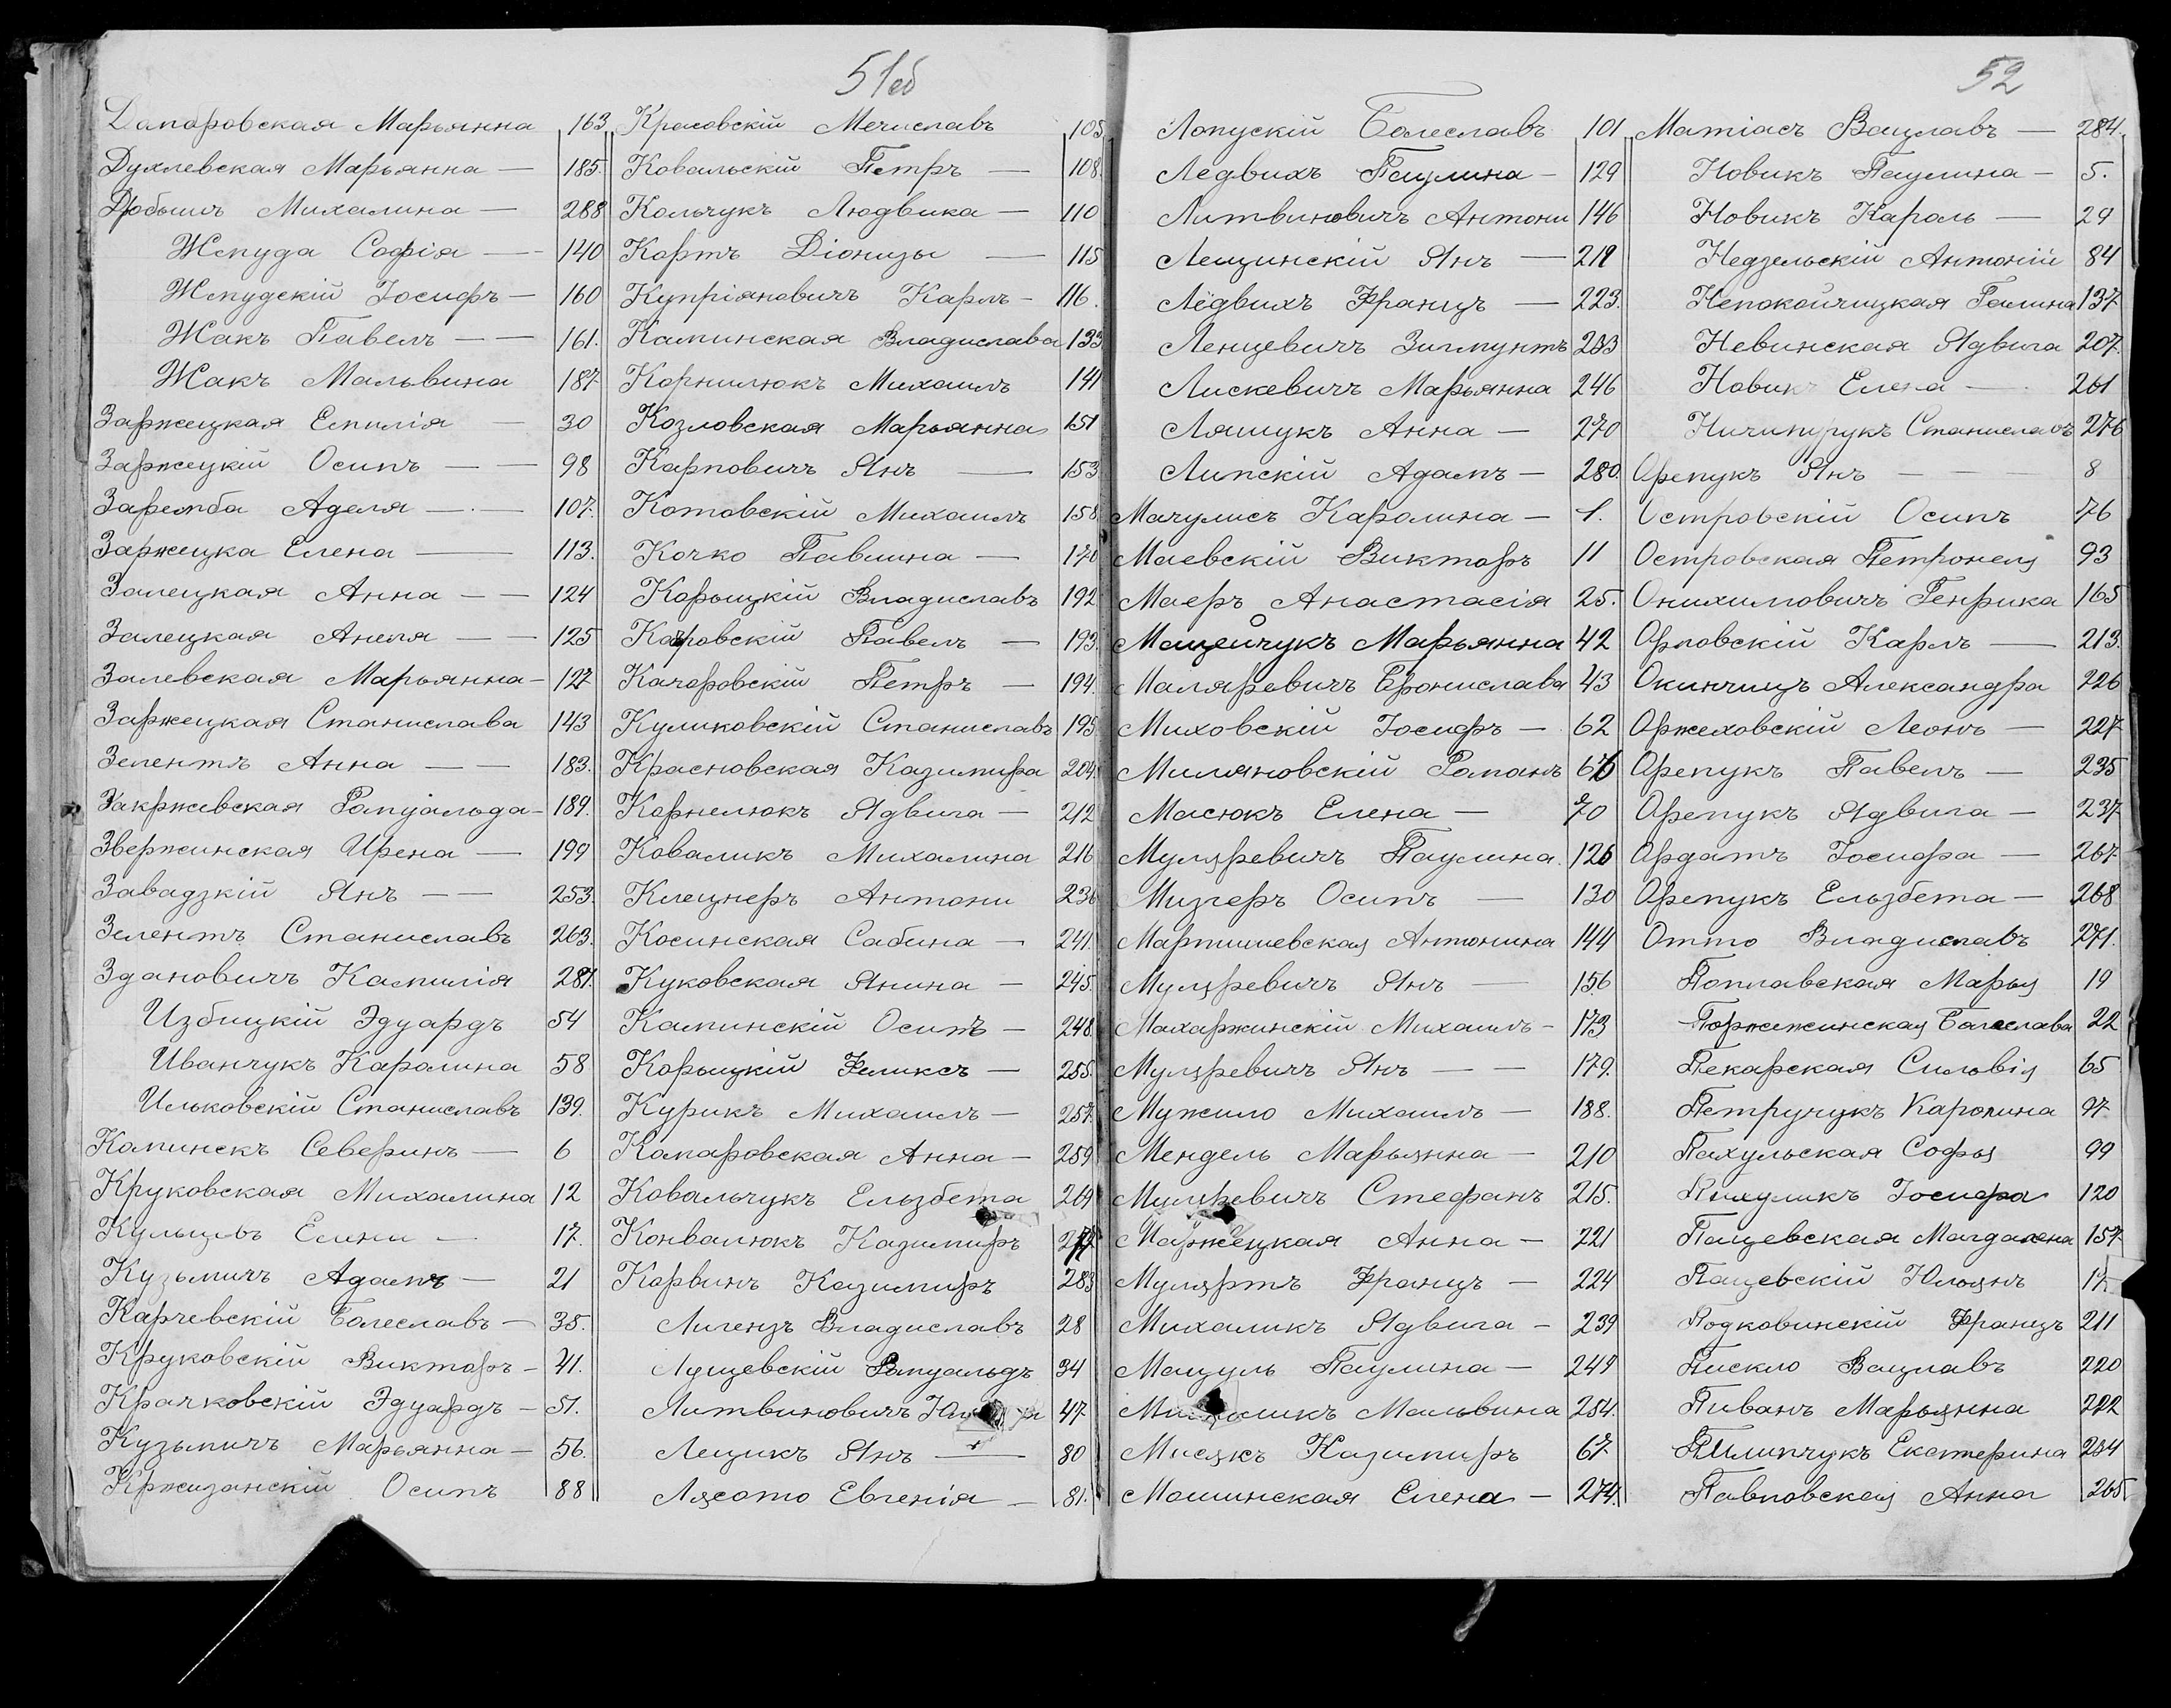 51об
Дамаровская Марьянна 163
Духлевская Марьянна — 185.
Добышъ Михалина — 288
Жепуда Софія — 140
Жепудскій Іосифъ — 160
Жакъ Павелъ — — 161.
Жакъ Мальвина 187
Заржецкая Емилія — 30
Заржецкій Осипъ — — 98
Заремба Аделя — — 107.
Заржецка Елена — 113.
Залецкая Анна — — 124
Залецкая Анеля — — 125
Залевская Марьянна — 127
Заржецкая Станислава 143
Зелентъ Анна — — 183.
Закржевская Ромуальда — 189.
Звержинская Ирена — 199
Завадзкій Янъ — — 253.
Зелентъ Станиславъ 263.
Здановичъ Камилія 281.
Избицкій Эдуардъ 54
Иванчукъ Каролина 58
Ильковскій Станиславъ 139.
Каминскъ Северинъ — 6
Круковская Михалина 12
Кульцъ — 17.
Кузьмичъ Адамъ — 21
Карчевскій Болеславъ — 35.
Круковскій Викторъ — 41.
Крачковскій Эдуардъ — 51.
Кузьмичъ Марьянна — 56.
Кржизанскій Осипъ 88
Красовскій Мечиславъ 105
Ковальскій Петръ — 108.
Кольчукъ Людвика — 110
Кортъ Діонизы — 115
Купріяновичъ Карлъ — 116.
Каминская Владислава 133
Корнилюкъ Михаилъ 141
Козловская Марьянна 151
Карповичъ Янъ — 153
Котовскій Михаилъ 158
Кочко Павлина — 170
Корыцкій Владиславъ 192
Каровскій Павелъ — 193.
Качоровскій Петръ — 194.
Куликовскій Станиславъ 195
Красновская Казимира 204.
Корнелюкъ Ядвига — 212
Коваликъ Михалина 216
Клецнеръ Антони 236
Косинская Сабина — 241.
Куковская Янина — 245.
Каминскій Осипъ — 248.
Корыцкій Феликсъ — 255.
Курикъ Михаилъ — 257.
Комаровская Анна — 259
Ковальчукъ Ельзбета 269
Конвалюкъ Казимиръ
Корвинъ Казимиръ 283
Лигензъ Владиславъ 28
Лущевскій Ромуальдъ 34
Литвиновичъ 47
Лещикъ Янъ — 80
Лясото Евгенія — 81.
52
Лопускій Болеславъ 101
Ледвихъ Паулина — 129
Литвиновичъ Антони 146
Лещинскій Янъ — 218
Лёдвихъ Францъ — 223.
Ленцевичъ Зигмунтъ 233
Лискевичъ Марьянна 246
Ляшукъ Анна — 270
Липскій Адамъ — 280.
Мачулисъ Каролина — 1.
Маевскій Викторъ 11
Маеръ Анастасія 25.
Мацейчукъ Марьянна 42
Маляревичъ Бронислава 43
Миховскій Іосифъ — 62
Миляновскій Романъ 66
Масюкъ Елена — 70
Муляревичъ Паулина. 126
Мизгеръ Осипъ — 130
Мартишевская Антонина 144
Муляревичъ Янъ — 156
Махаржинскій Михаилъ — 173
Муляревичъ Янъ — — 179.
Мужило Михаилъ — 188.
Мендель Марьянна — 210
Муляревичъ Стефанъ 215.
Маржецкая Анна — 221
Мулярть Францъ — 224
Михаликъ Ядвига — 239
Мацуль Паулина — 249
Михаликъ Мальвина 254.
Мисякъ Казимиръ 67.
Мошинская Елена — 274.
Матіасъ Вацлавъ — 284.
Новикъ Паулина — 5.
Новикъ Кароль — 29
Недзельскій Антоній 84
Непокойчицкая Галина 137
Невинская Ядвига 207.
Новикъ Елена — 261
Ничипурукъ Станиславъ 276
Орепукъ Янъ — — 8
Островскій Осипъ 76
Островская Петронеля 93
Онихимовичъ Генрика 165
Орловскій Карлъ — 213.
Окинчицъ Александра 226
Оржеховскій Леонъ — 227.
Орепукъ Павелъ — 235
Орепукъ Ядвига — 237
Ордатъ Іосифа — 267
Орепукъ Ельзбета — 268
Отто Владиславъ 271.
Поплавская Марья 19
Поржежинская Болеслава 22
Пекарская Сильвія 65
Петручукъ Каролина 97.
Пахульская Софья 99
Пихуликъ Іосифа 120
Пацевская Магдалена 157
Пацевскій Юльянъ
Подковинскій Францъ 211
Пискло Вацлавъ 220
Пиванъ Марьянна 222
Пилипчукъ Екатерина 234
Павловская Анна 265